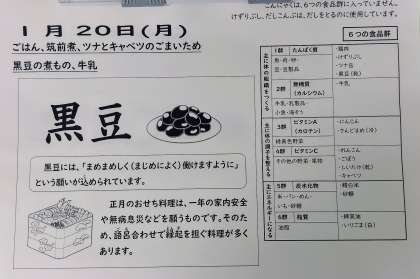 こんにゃくは、6つの食品群に入っていません。
けずりぶし、だしこんぶは、だしをとるのに使用しています。
1月20日(月)
ごはん、筑前煮、ツナとキャベツのごまいため
黒豆の煮もの、牛乳
黒豆
黒豆には、「まめまめしく(まじめによく)働けますように」
という願いが込められています。
正月のおせち料理は、一年の家内安全
や無病息災などを願うものです。そのた
め、語呂合わせで縁起を担ぐ料理が多く
あります。
6つの食品群
主に体の組織をつくる
1群 たんぱく質
魚・肉・卵・
豆・豆製品
・鶏肉
・けずりぶし
・ツナ缶
・黒豆(乾)
2群 無機質
(カルシウム)
牛乳・乳製品・
小魚・海そう
・牛乳
主に体の調子を整える
3群 ビタミンA
(カロテン)
緑黄色野菜
・にんじん
・さんどまめ(冷)
4群 ビタミンC
その他の野菜・果物
・れんこん
・ごぼう
・しいたけ(乾)
・キャベツ
主にエネルギーになる
5群 炭水化物
米・パン・めん・
いも・砂糖
・精白米
・砂糖
6群 脂質
油脂
・綿実油
・いりごま(白)